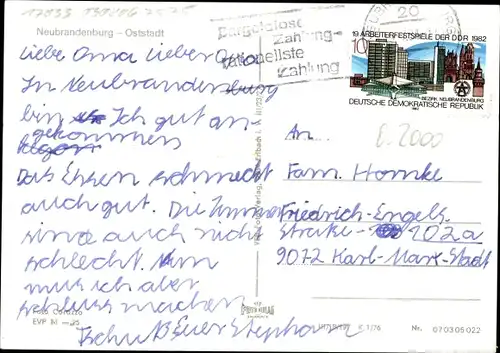 17033
Neubrandenburg - Oststadt
20
Bargeldlose
Zahlung-
rationellste
Zahlung
19. ARBEITERFESTSPIELE DER DDR 1982
10
BEZIRK NEUBRANDENBURG
DEUTSCHE DEMOKRATISCHE REPUBLIK
Liebe Oma Lieber Opa
In Neubrandenburg
bin Ich gut an-
gekommen
Das Essen schmeckt
auch gut. Die Zimmer
sind auch nicht
schlecht. Nun
mus ich aber
schluss machen
Tschüß Euer Stephan
An
E.2000
Fam. Homke
Friedrich-Engels
Straße 102a
9072 Karl-Marx-Stadt
EVP M -,25
K 1/76
Nr. 07 03 05 022